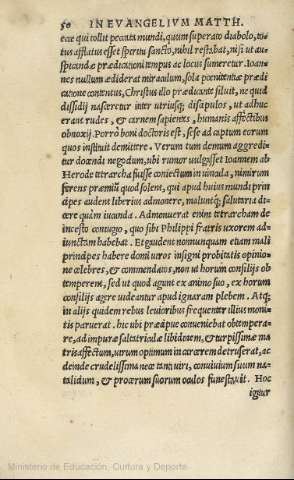 50 IN EVANGELIVM MATTH.
ecce qui tollit peccata mundi, quum superato diabolo, to-
tus afflatus esset spiritu sancto, nihil restabat, nisi ut au-
spicandæ prædicationi tempus ac locus sumeretur. Ioan-
nes nullum ædiderat miraculum, sola pœnitentiæ prædi
catione contentus, Christus illo prædicante siluit, ne quid
dissidij nasceretur inter utriusq; discipulos, ut adhuc
erant rudes, & carnem sapientes, humanis affectibus
obnoxij. Porrò boni doctoris est, sese ad captum eorum
quos instituit demittere. Verum tum demum aggredi-
tur docendi negocium, ubi rumor uulgasset Ioannem ab
Herode tetrarcha fuisse coniectum in uincula, nimirum
ferens præmiũ quod solent, qui apud huius mundi prin
cipes audent liberius admonere, maluntq; salutaria di-
cere quàm iucunda. Admonuerat enim tetrarcham de
incesto coniugio, quo sibi Philippi fratris uxorem ad-
iunctam habebat. Et quidem nonnunquam etiam mali
principes habere domi uiros insigni probitatis opinio-
ne celebres, & commendatos, non ut horum consilijs ob
temperent, sed ut quod agunt ex animo suo, ex horum
consilijs agere uideantur apud ignaram plebem. Atq;
in alijs quidem rebus leuioribus frequenter illius moni-
tis paruerat. hic ubi præcipue conueniebat obtempera-
re, ad impuræ saltatriculæ libidinem, & turpissimæ ma
tris affectum, uirum optimum in carcerem detruserat, ac
deinde crudelissima nece tanti uiri, conuiuium suum na-
talidum, & procerum suorum oculos funestauit. Hoc
igitur
Ministerio de Educación, Cultura y Deporte